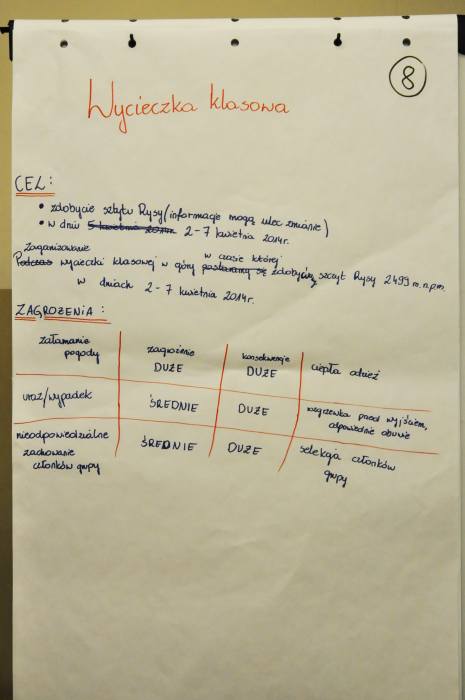 8
Wycieczka klasowa
CEL:
• zdobycie sztytu Rysy (informacje mogą ulec zmianie)
• w dniu 5 kwietnia 2014r. 2-7 kwietnia 2014r.
Zorganizowanie w czasie której
Podczas wycieczki klasowej w góry postaramy się zdobędziemy szczyt Rysy 2499 m.n.p.m.
w dniach 2-7 kwietnia 2014r.
ZAGROŻENIA:
załamanie pogody zagrożenie DUŻE konsekwencje DUŻE ciepła odzież
uraz/wypadek ŚREDNIE DUŻE rozgrzewka przed wyjściem, odpowiednie obuwie
nieodpowiedzialne zachowanie członków grupy ŚREDNIE DUŻE selekcja członków grupy